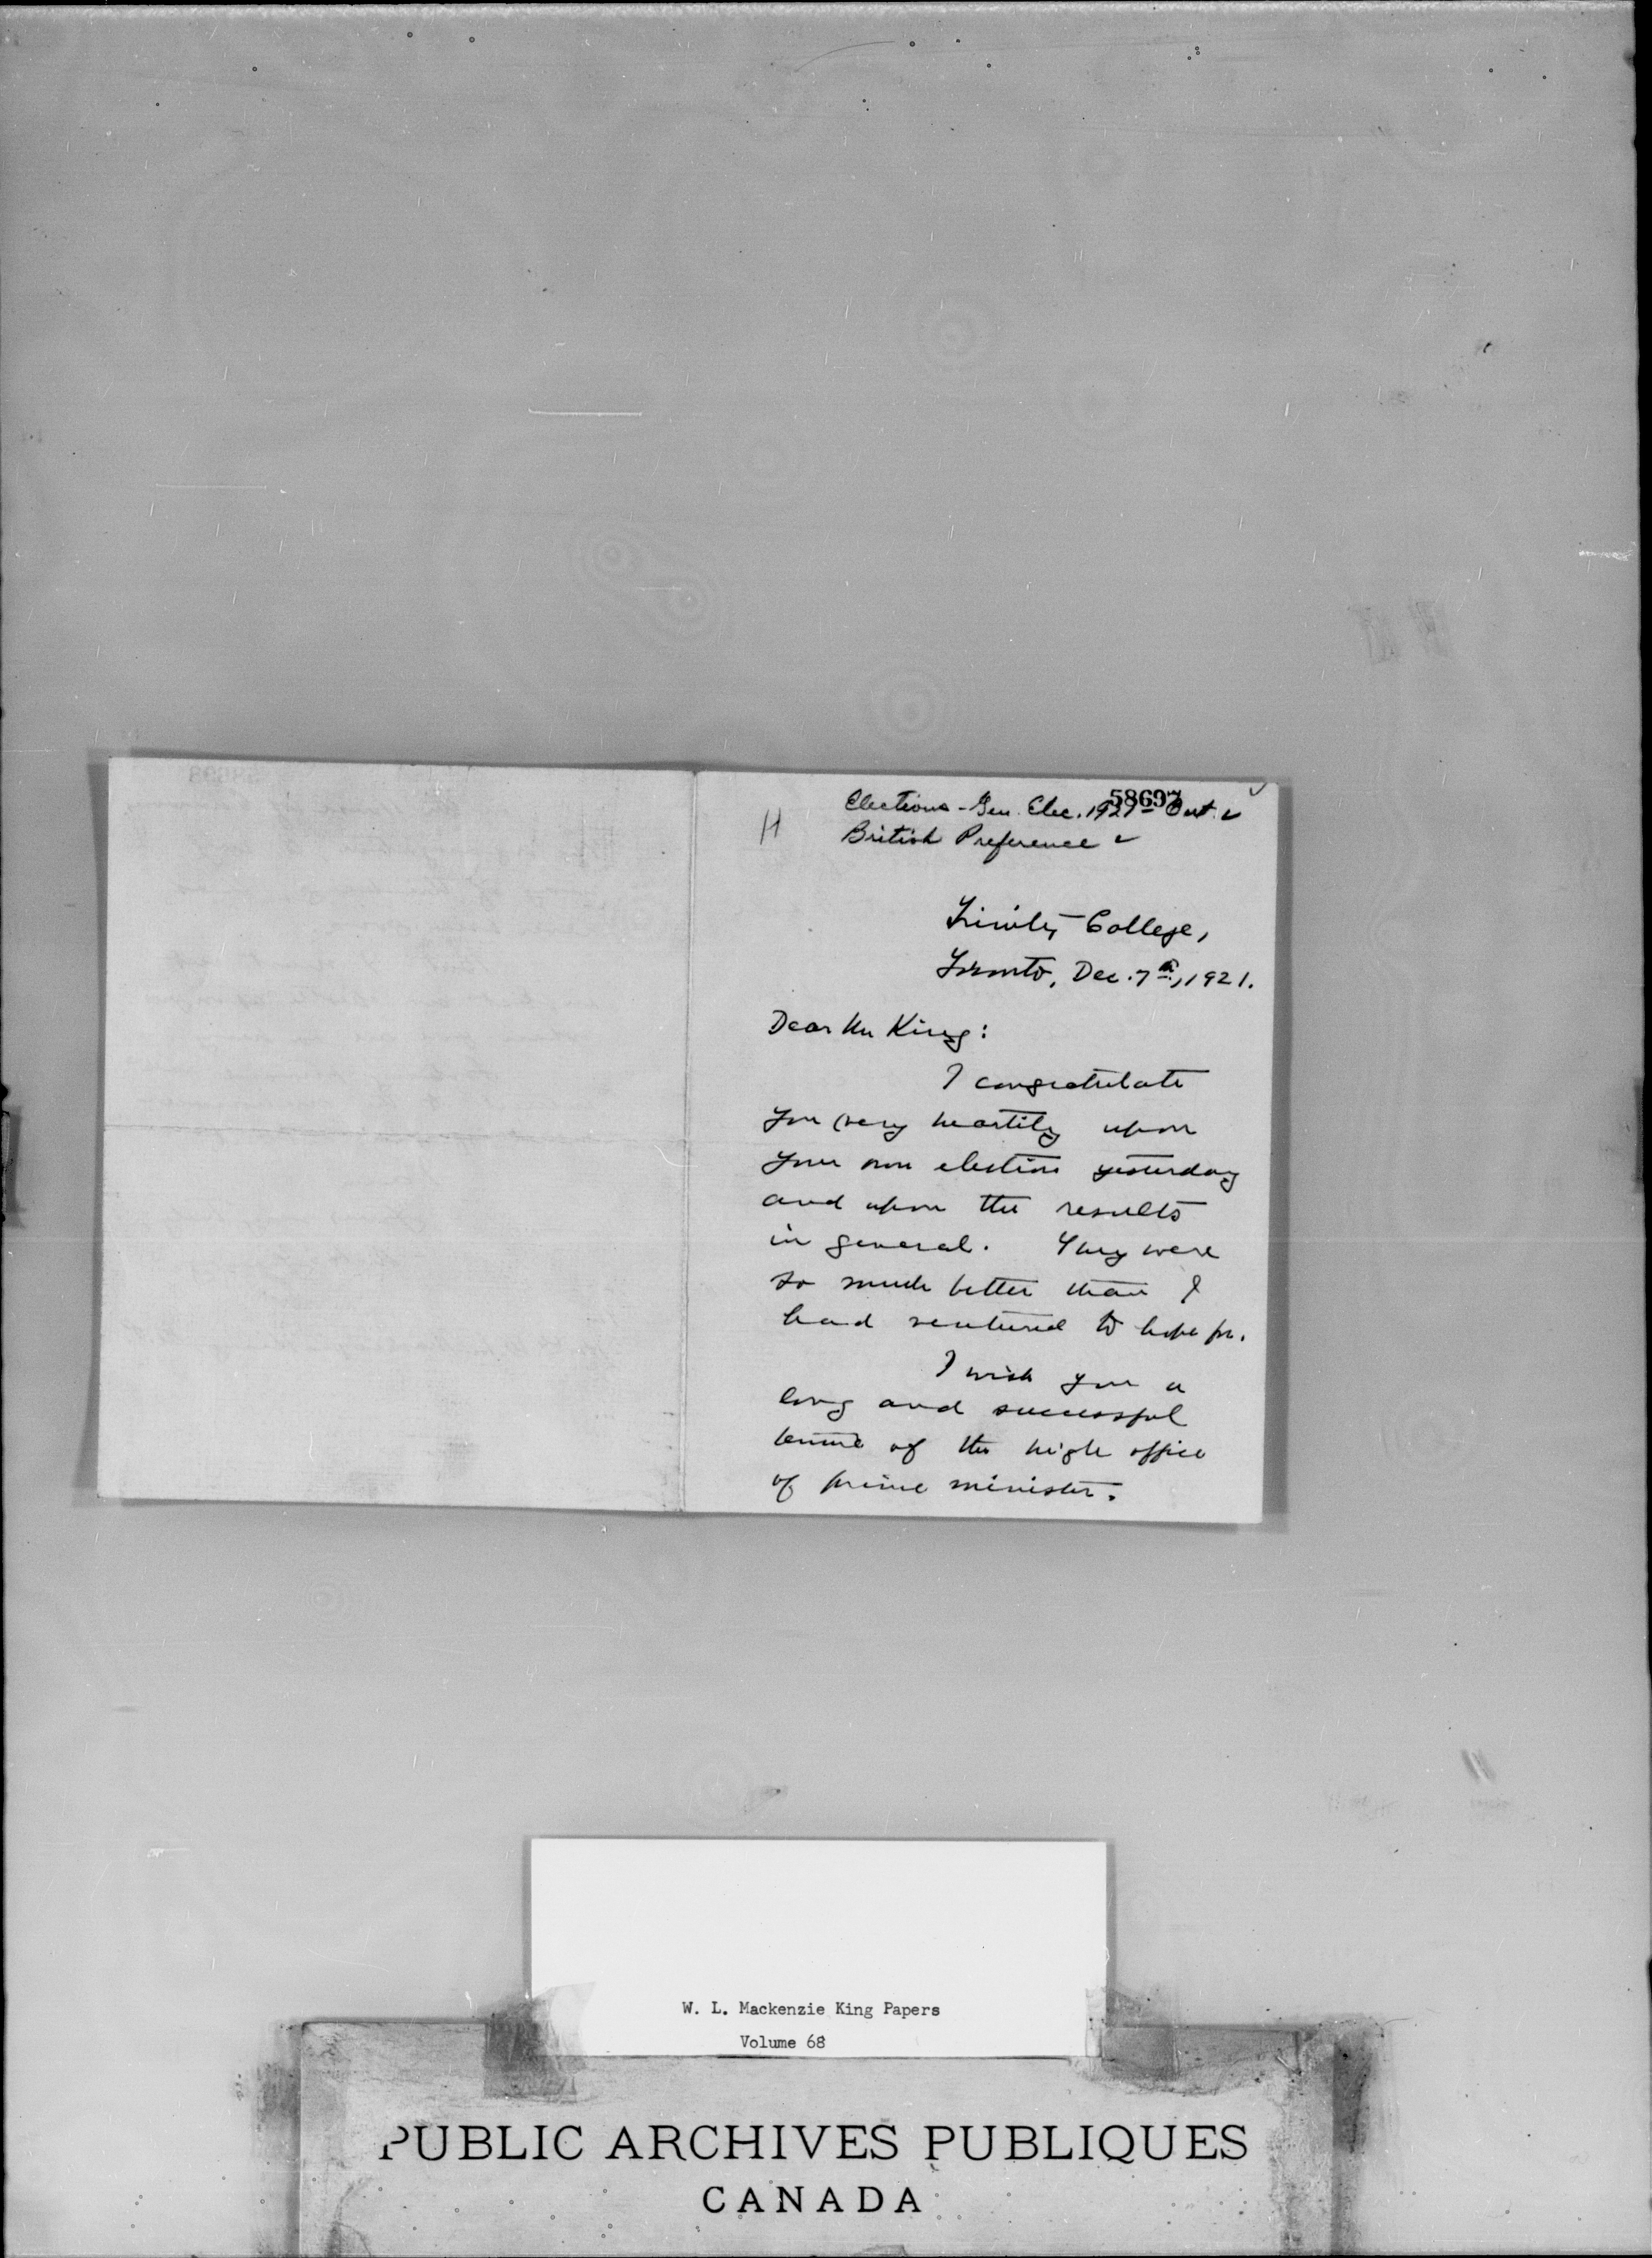 58697
Elections - Gen. Elec. 1921 - Ont. ✓
H
British Preference ✓
Trinity College,
Toronto, Dec. 7th, 1921.
Dear Mr King:
I congratulate
you very heartily upon
your own election yesterday
and upon the results
in general. They were
so much better than I
had ventured to hope for.
I wish you a
long and successful
tenure of the high office
of prime minister.
W. L. Mackenzie King Papers
Volume 68
PUBLIC ARCHIVES PUBLIQUES
CANADA